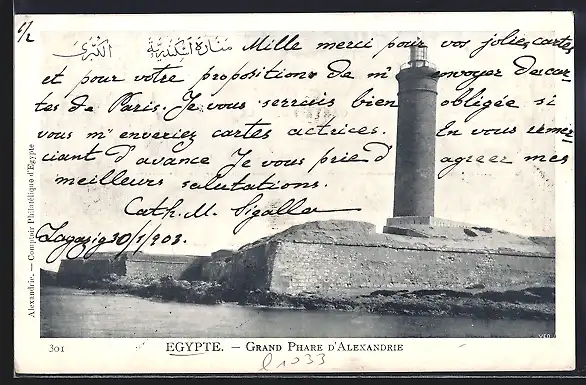 1/2
منارة اسكندرية الكبرى
Mille merci pour vos jolies cartes
et pour votre propositions de m'envoyer des car-
tes de Paris. Je vous serais bien obligée si
vous m'enveriez cartes actrices. En vous remer-
ciant d'avance Je vous prie d'agreer mes
meilleurs salutations.
Cath. M. Sigalla
Zagazig 30/1903.
Alexandrie. — Comptoir Philatélique d'Egypte
301
EGYPTE. — GRAND PHARE D'ALEXANDRIE
l 1033